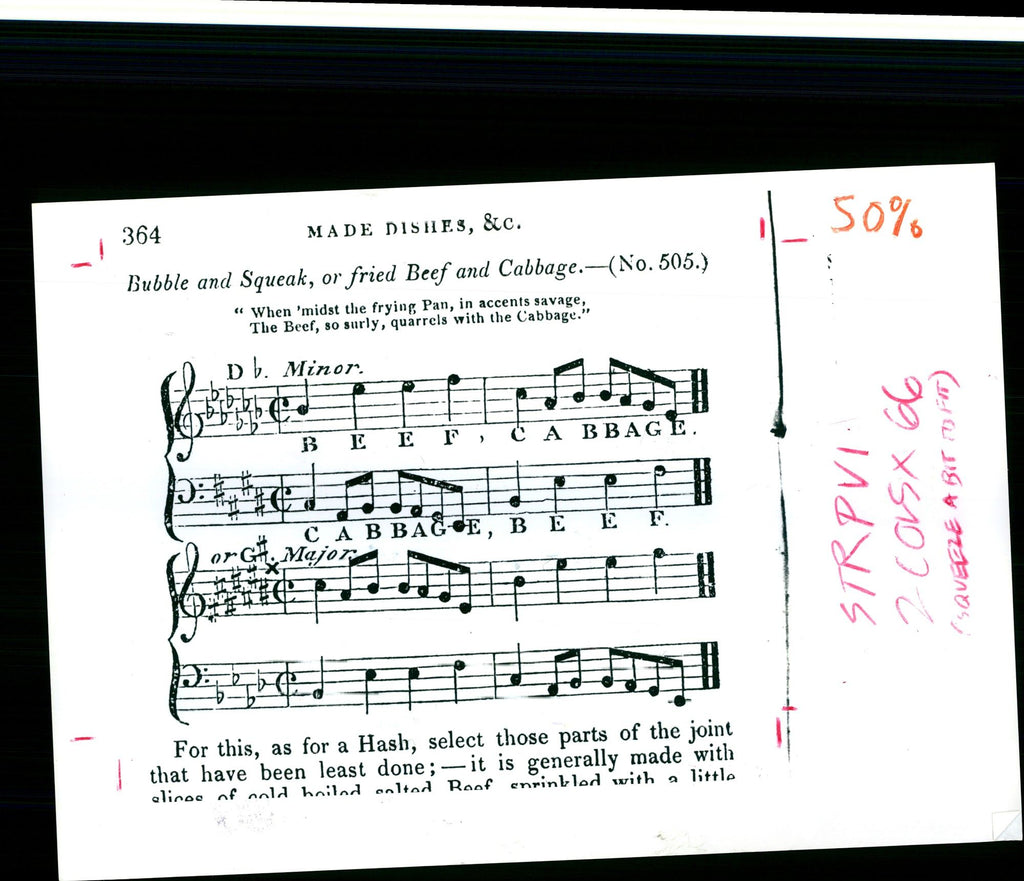 364 MADE DISHES, &c.
Bubble and Squeak, or fried Beef and Cabbage.—(No. 505.)
“ When 'midst the frying Pan, in accents savage,
The Beef, so surly, quarrels with the Cabbage.”
D ♭. Minor.
B E E F , C A B B A G E .
C A B B A G E, B E E F.
or G♯. Major.
For this, as for a Hash, select those parts of the joint
that have been least done; — it is generally made with
slices of cold boiled salted Beef, sprinkled with a little
50%
STRPV1
2 COLS X 66
(SQUEEZE A BIT TO FIT)